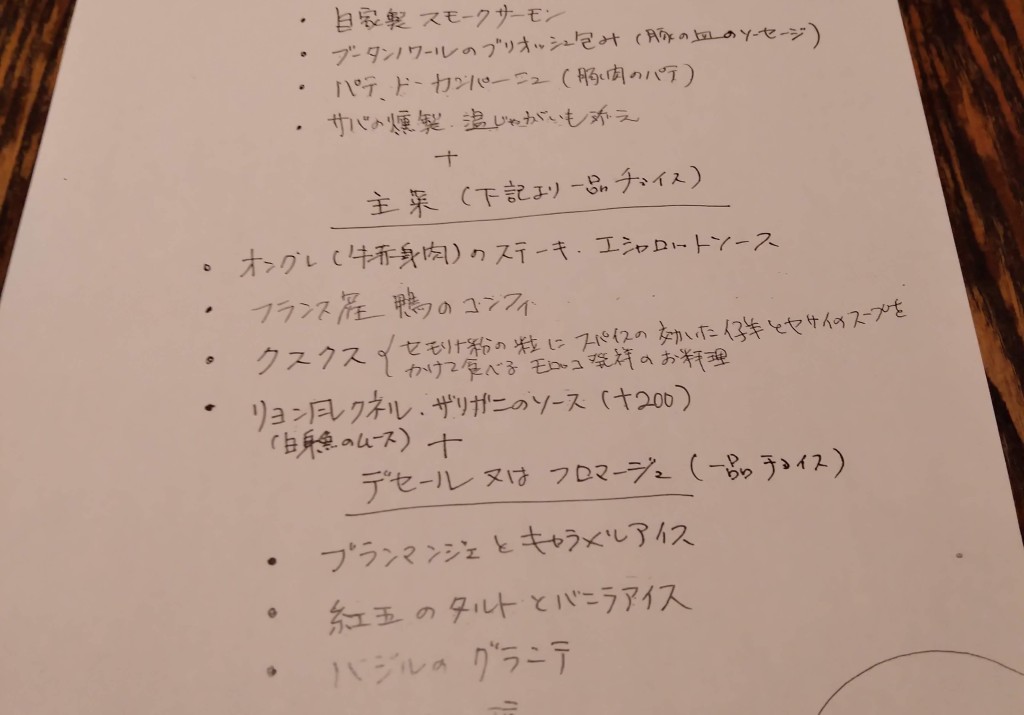 ・自家製 スモークサーモン
・ブータンノワールのブリオッシュ包み (豚の血のソーセージ)
・パテ、ドーカンパーニュ (豚肉のパテ)
・サバの燻製.温じゃがいも添え
+
主菜 (下記より一品チョイス)
・オングレ(牛赤身肉)のステーキ.エシャロットソース
・フランス産 鴨のコンフィ
・クスクス { セモリナ粉の粒にスパイスの効いた仔羊とヤサイのスープを
かけて食べるモロッコ発祥のお料理
・リヨン風クネル.ザリガニのソース (+200)
(白身魚のムース)
+
デセール又はフロマージュ (一品チョイス)
・ブランマンジェとキャラメルアイス
・紅玉のタルトとバニラアイス
・バジルのグラニテ